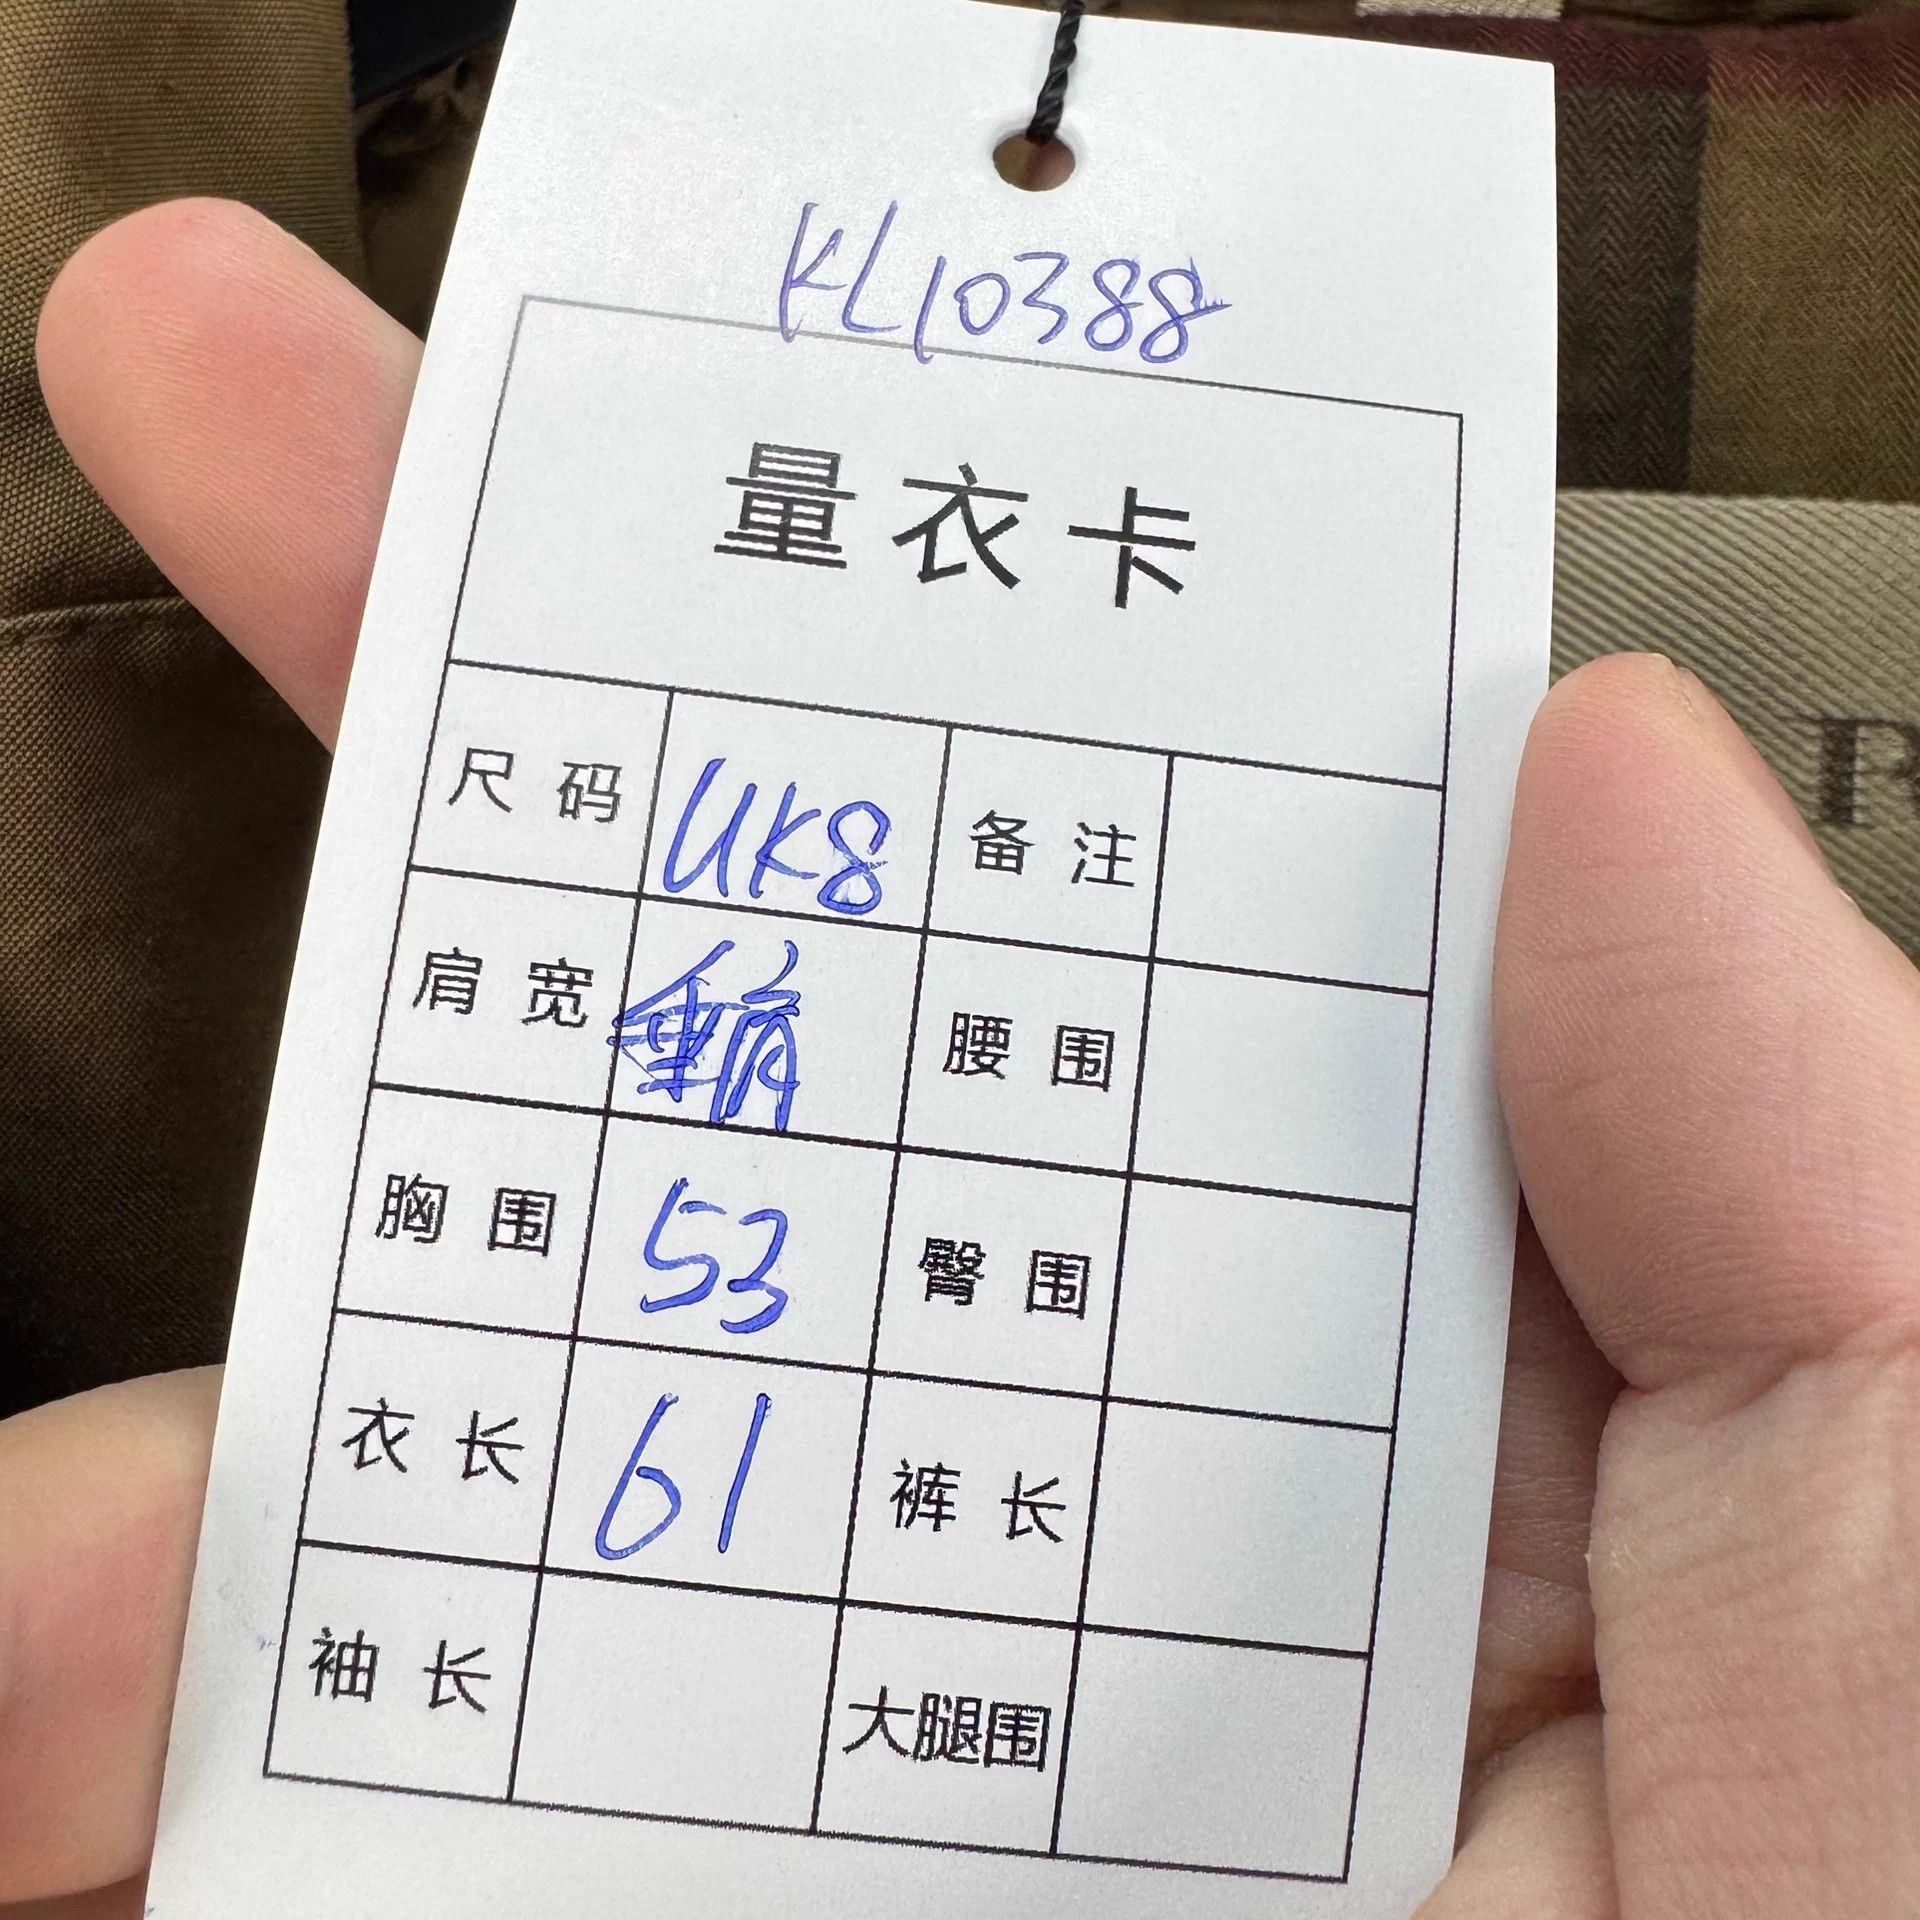 KL10388
量衣卡
尺码 UK8 备注
肩宽 垂肩 腰围
胸围 53 臀围
衣长 61 裤长
袖长 大腿围